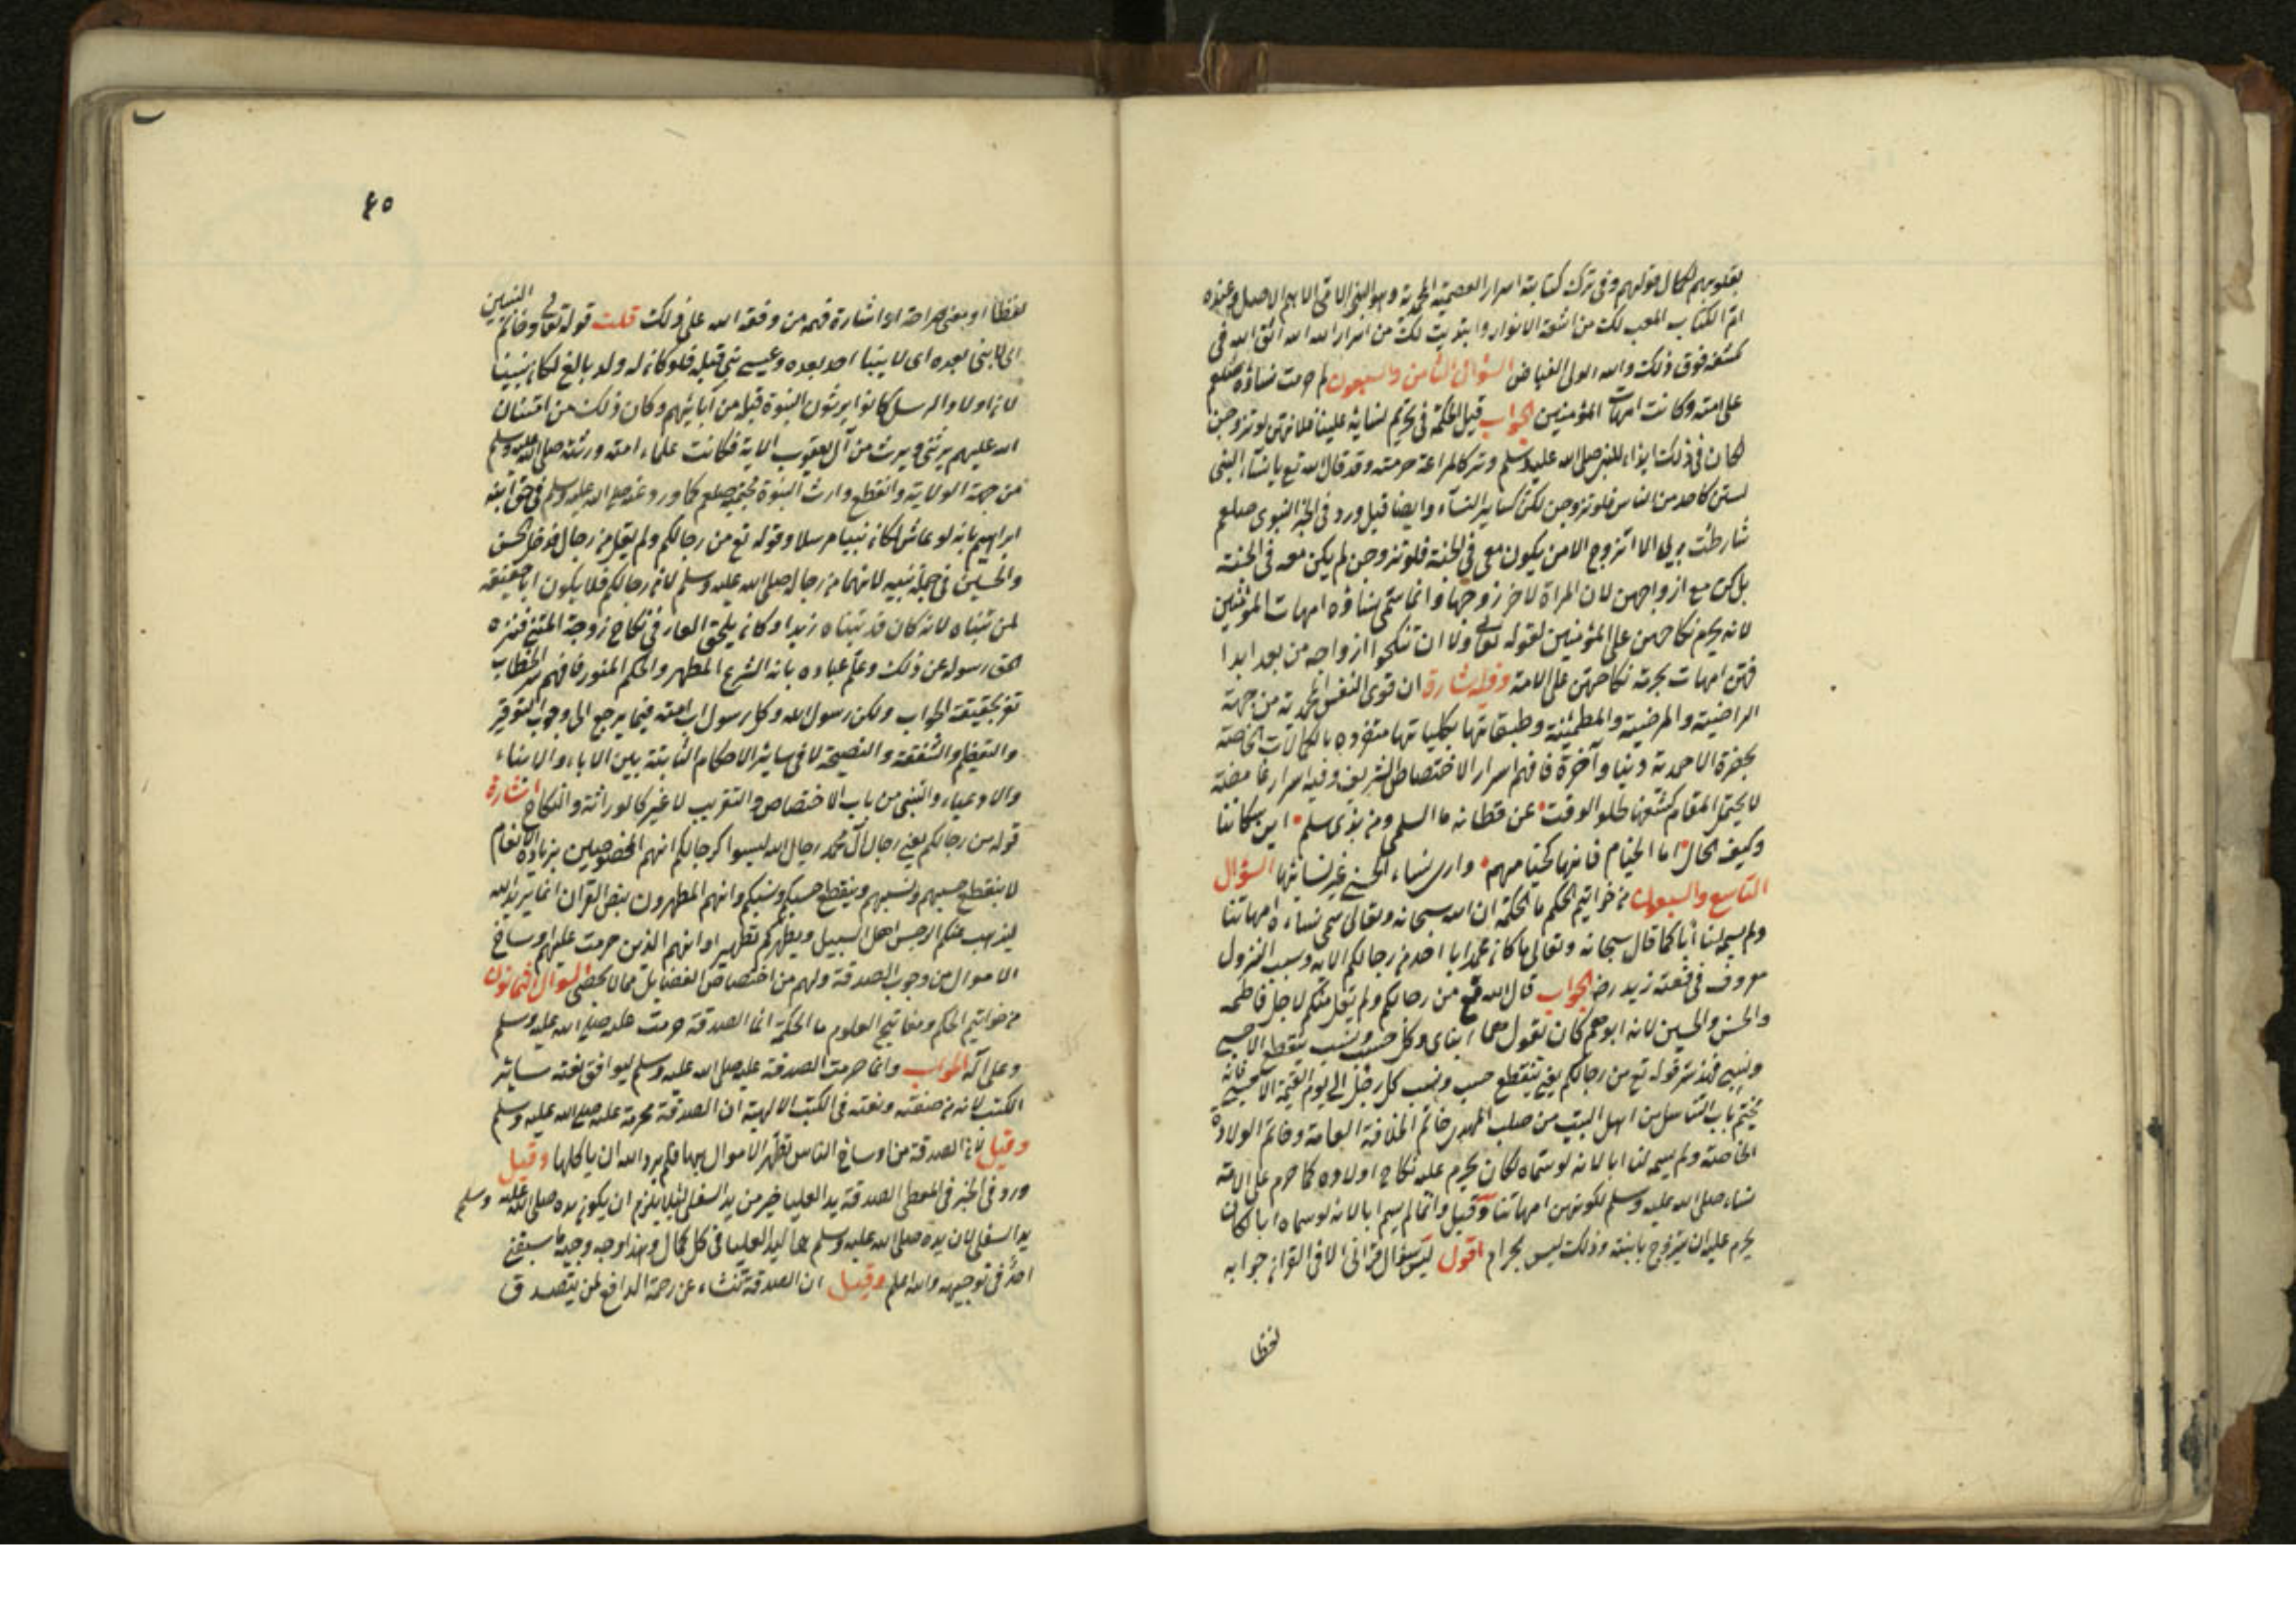 بقلوبهم لكمال قولهم وفى ترك كتابة اسرار العصمة المحمدية وهو النبى الامى الابهى الاصل وعنده
ام الكتاب لك من اشعة الانوار وابديت لك من اسرار الله الله فى
كشفه فوق ذلك والله المولى الفياض السؤال الثامن والسبعون لم حرمت نساؤه صلعم
على امته وكانت امهات المؤمنين الجواب قيل الحكمة فى تحريم نسائه علينا فلانهن لو تزوجن
لكان فى ذلك ايذاء للنبى صلى الله عليه وسلم وتركا لمراعة حرمته وقد قال الله تع يا نساء النبى
لستن كاحد من النساء فلو تزوجن لكن كساير النساء وايضا قيل ورد فى الخبر النبوى صلعم
شارطت ربى ان لا اتزوج الا من يكون معى فى الجنة فلو تزوجن لم يكن معه فى الجنة
بل كن مع ازواجهن لان المراة لاخر زوجها وانما سمى نساؤه امهات المؤمنين
لانه يحرم نكاحهن على المؤمنين لقوله تعالى ولا ان تنكحوا ازواجه من بعده ابدا
فهن امهات بحرمة نكاحهن على الامة وفيه اشارة ان قوى النفس المحمدية من جهة
الراضية والمرضية والمطمئنة وطبقاتها بكلياتها متفرده بالكمالات الخاصة
بحضرة الاحمدية دنيا وآخرة فافهم اسرار الاختصاص الشريف وفيه اسرار غامضة
لا يحتمل المقام كشفها طلو الوقت عن قطانه ما السلمى ومن بذى سلم اين سكاننا
وكيف الحال اما الخيام فانها كخيامهم وارى نساء الحى غير نسائها السؤال
التاسع والسبعون من خواتيم الحكم ما الحكمة ان الله سبحانه وتعالى سمى نساءه امهاتنا
ولم يسمه لنا أبا كما قال سبحانه وتعالى ما كان محمد ابا احد من رجالكم الايه وسبب النزول
معروف فى قصة زيد رض الجواب قال الله تع من رجالكم ولم يقل منكم لاجل فاطمه
والحسن والحسين لانه ابوهم كان يقول هما ابناى وكل حسب ونسب ينقطع الا حسبى
ونسبى فلذا ستر قوله تع من رجالكم يعنى ينقطع حسب ونسب كل رجل الى يوم القيمة الا حسبى فانه
يختم باب التناسل من اهل البيت من صلب المهدى خاتم الخلافة العامة وخاتم الولادة
الخاصة ولم يسمه لنا ابا لانه لو سماه لكان يحرم عليه نكاح اولاده كما حرم على الامة
نساءه صلى الله عليه وسلم لكونهن امهاتنا وقيل وانما لم يسم ابا لانه لو سماه ابا لكان
يحرم عليه ان يتزوج بابنته وذلك ليس بحرام اقول ليس سؤال قرانى الا فى القران جوابه
لفظا
٤٥
لفظا او معنى صراحة او اشارة فهمه من وفقه الله على ذلك قلت قوله تعالى وخاتم النبيين
اى لا نبى بعده اى لا ينبا احد بعده وعيسى نبى قبله فلو كان له ولد بالغ لكان نبيا
لان اولاد الرسل كانوا يرثون النبوة قبله من آبائهم وكان ذلك من امتنان
الله عليهم يرثنى ويرث من آل يعقوب الاية فكانت علماء امته ورثته صلى الله عليه وسلم
من جهة الولاية وانقطع وارث النبوة بختمه صلعم كما ورد عنه صلى الله عليه وسلم فى حق ابنه
ابراهيم بانه لو عاش لكان نبيا مرسلا وقوله تع من رجالكم ولم يقل من رجاله فدخل الحسن
والحسين فى جملة نبيه لانهما من رجاله صلى الله عليه وسلم لا من رجالكم فلا يكون ابا حقيقة
لمن تبناه لانه كان قد تبناه زيدا وكان يلحق العار فى نكاح زوجة المتبنى فنزه
الحق رسوله عن ذلك وعلم عباده بانه الشرع المطهر والحكم المنور فافهم سر الخطاب
تفز بحقيقة الجواب ولكن رسول الله وكل رسول اب امته فيما يرجع الى وجوب التوقير
والتعظيم والشفقة والنصيحة لا فى ساير الاحكام الثابتة بين الاباء والابناء
والادعياء والتبنى من باب الاختصاص والتقريب لا غير كالوراثة والنكاح اشارة
قوله من رجالكم يعنى رجال آل محمد رجال الله ليسوا كرجالكم انهم المخصوصين بزيادة الانعام
لا ينقطع حسبهم ونسبهم وينقطع حسبكم ونسبكم وانهم المطهرون بنص القرآن انما يريد الله
ليذهب عنكم الرجس اهل البيت ويطهركم تطهيرا وانهم الذين حرمت عليهم اوساخ
الاموال من وجوب الصدقة ولهم من اختصاص الفضايل مما لا يحصى السؤال الثمانون
من خواتيم الحكم ومفاتيح العلوم ما الحكمة انما الصدقة حرمت عليه صلى الله عليه وسلم
وعلى آله الجواب وانما حرمت الصدقة عليه صلى الله عليه وسلم ليوافق نعته ساير
الكتب لانه من صفته ونعته فى الكتب الالهية ان الصدقة محرمة عليه صلى الله عليه وسلم
وقيل لان الصدقة من اوساخ الناس تطهر الاموال بها فلم يرد الله ان ياكلها وقيل
ورد فى الخبر فى المعطى الصدقة يد العليا خير من يد السفلى لئلا يلزم ان يكون يده صلى الله عليه وسلم
يد السفلى لان يده صلى الله عليه وسلم هما اليد العليا فى كل كمال وهذا وجه وجيه ما سبقنى
احد فى توجيهه والله اعلم وقيل ان الصدقة تنشاء عن رحمة الدافع لمن يتصدق